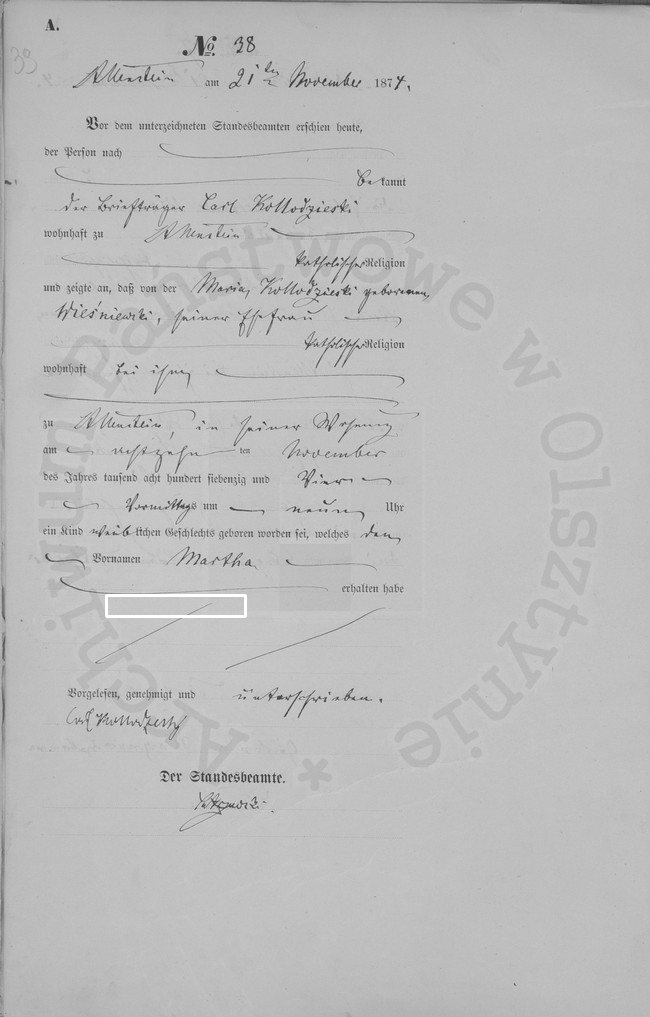 A.
39
No. 38
Allenstein am 21ten November 1874.
Vor dem unterzeichneten Standesbeamten erschien heute,
der Person nach
bekannt
der Briefträger Carl Kollodzieski
wohnhaft zu Allenstein
katholischer Religion
und zeigte an, daß von der Maria, Kollodzieski geborenen
Wiesniewski, seiner Ehefrau
katholischer Religion
wohnhaft bei ihm
zu Allenstein, in seiner Wohnung
am achtzehn ten November
des Jahres tausend acht hundert siebenzig und Vier
Vormittags um neun Uhr
ein Kind weiblichen Geschlechts geboren worden sei, welches den
Vornamen Martha
erhalten habe
Vorgelesen, genehmigt und unterschrieben.
Carl
Der Standesbeamte.
Archiwum Państwowe w Olsztynie *